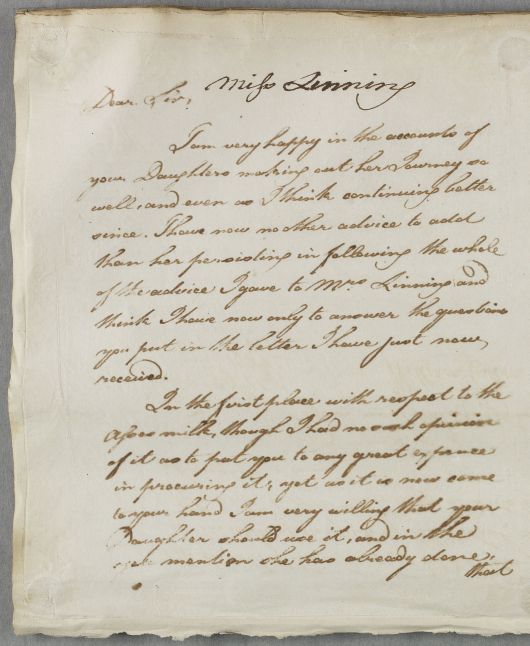 Miss Linning
Dear Sir,
I am very happy in the accounts of
your Daughters making out her Journey so
well, and even as I think continuing better
since. I have now no other advice to add
than her persisting in following the whole
of the advice I gave to Mrs Linning and
think I have now only to answer the questions
you put in the letter I have just now
received.
In the first place with respect to the
Asses milk, though I had no such opinion
of it as to put you to any great expence
in procuring it; yet as it is now come
to your hand I am very willing that your
Daughter should use it, and in the
mention she has already done.
that